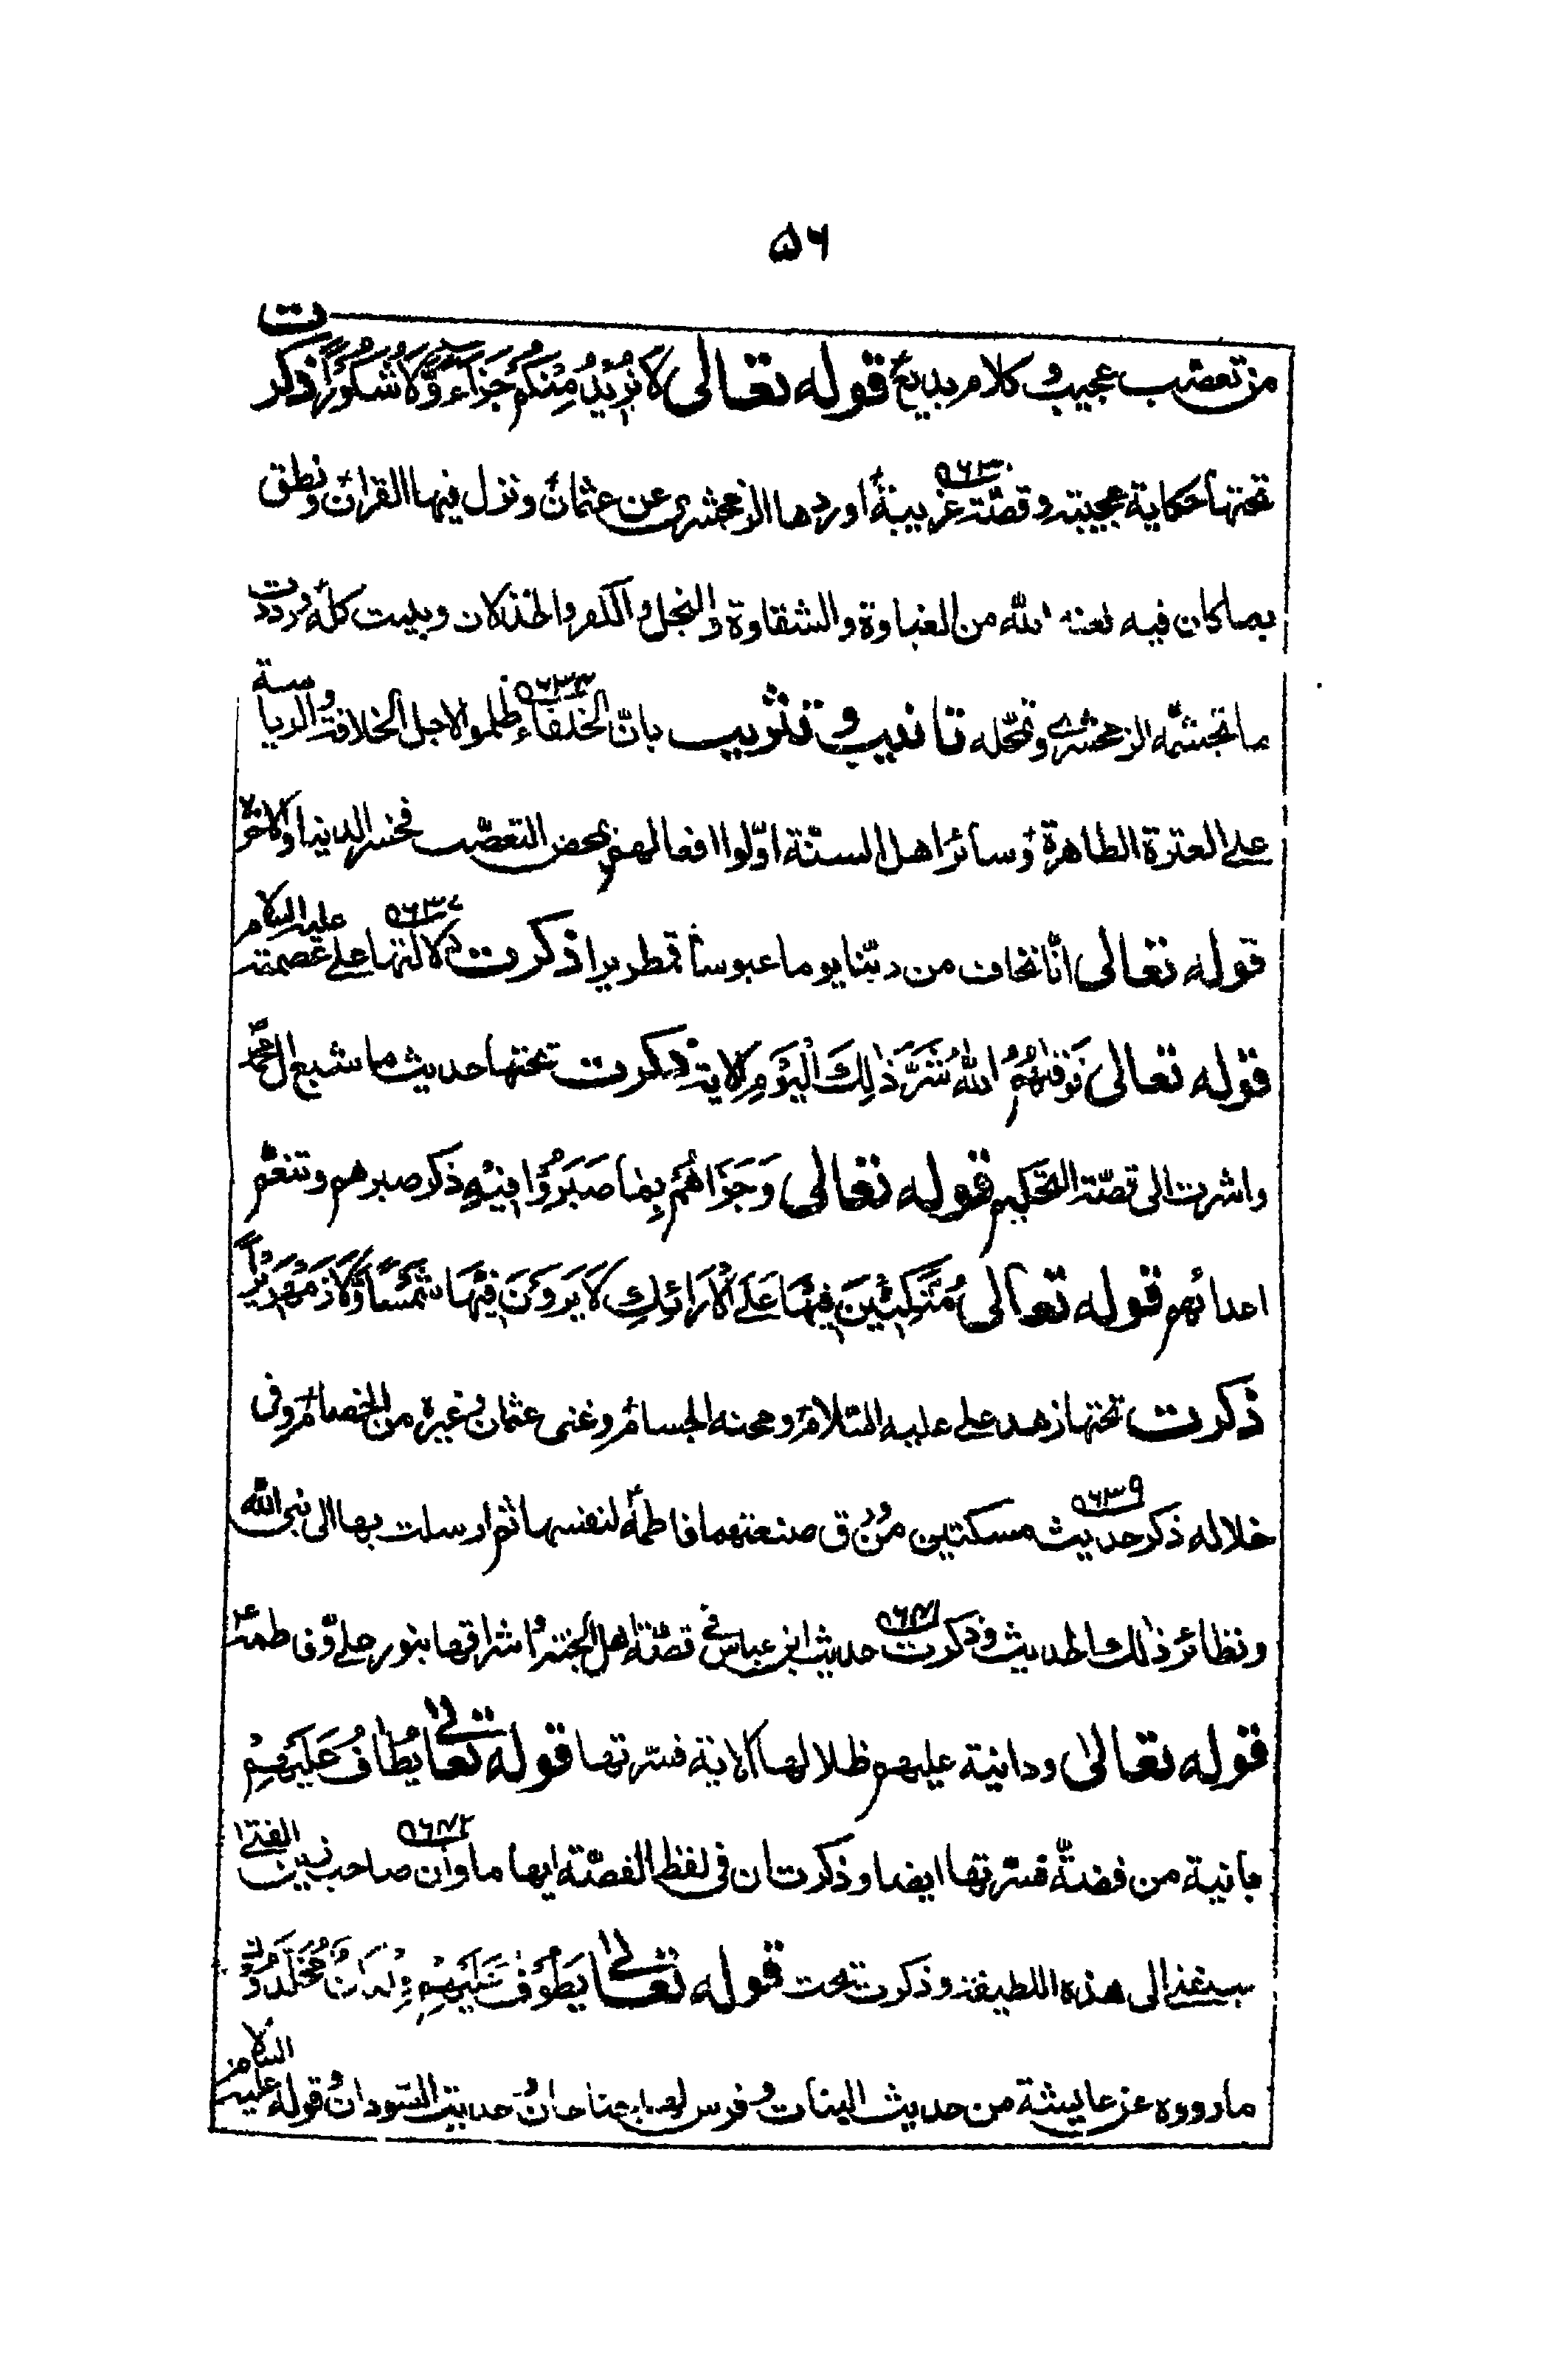 ۵۶
من تعصّب عجيب و كلام بديع قوله تعالى لَا نُرِيْدُ مِنْكُمْ جَزَاءً وَّلَا شُكُوْرًا ذكرت
تحتها حكاية عجيبة و قصّة غريبة اوردها الزمخشرى عن عثمان و نزل فيها القران و نطق
بما كان فيه لعنه الله من الغباوة و الشقاوة و البخل و اللوم و الخذلان و بينت كلّه و رددت
ما تجشّمه الزمخشرى و تمحّله تانيب و تثريب بانّ الخلفاء ظلموا لاجل الخلافة و الرياسة
على العترة الطاهرة و سائر اهل السنّة اوّلوا افعالهم بمحض التعصّب فخسر الدنيا و الاخرة
قوله تعالى انّا نخاف من ربّنا يوما عبوسا قمطريرا ذكرت دلالتها على عصمته عليه السلام
قوله تعالى فَوَقٰىهُمُ اللّٰهُ شَرَّ ذٰلِكَ الْيَوْمِ الاية ذكرت تحتها حديث ما شبع ال محمّد
و اشرت الى قصّة التحكيم قوله تعالى وَ جَزَاهُمْ بِمَا صَبَرُوْا فيه ذكر صبرهم و تنعّم
اعدائهم قوله تعالى مُتَّكِئِيْنَ فِيْهَا عَلَى الْاَرَائِكِ لَا يَرَوْنَ فِيْهَا شَمْسًا وَّلَا زَمْهَرِيْرًا
ذكرت تحتها زهد على عليه السّلام و محنه الجسام و غنى عثمان و غيره من الخصام و فى
خلاله ذكر حديث مسكتين من ورق صنعتهما فاطمة لنفسها ثم ارسلت بها الى نبى الله
و نظائر ذلك الحديث و ذكرت حديث ابن عباس فى قصّة اهل الجنة و اشراقها بنور على و فاطمة
قوله تعالى و دانية عليهم ظلالها الاية فسّرتها قوله تعالى يُطَافُ عَلَيْهِمْ
بانية من فضة فسّرتها ايضا و ذكرت ان فى لفظ الفضّة ايهاما و ان صاحب نسيت الفتى
سبقنى الى هذه اللطيفة و ذكرت تحت قوله تعالى يَطُوْفُ عَلَيْهِمْ وِلْدَانٌ مُّخَلَّدُوْنَ
ما رووه عن عايشة من حديث البنات و فرس لها جناحان و حديث السّودان و قوله عليه السلام
۵۶۳۰
۵۶۳۳
۵۶۳۷
۵۶۳۹
۵۶۴۱
۵۶۴۲